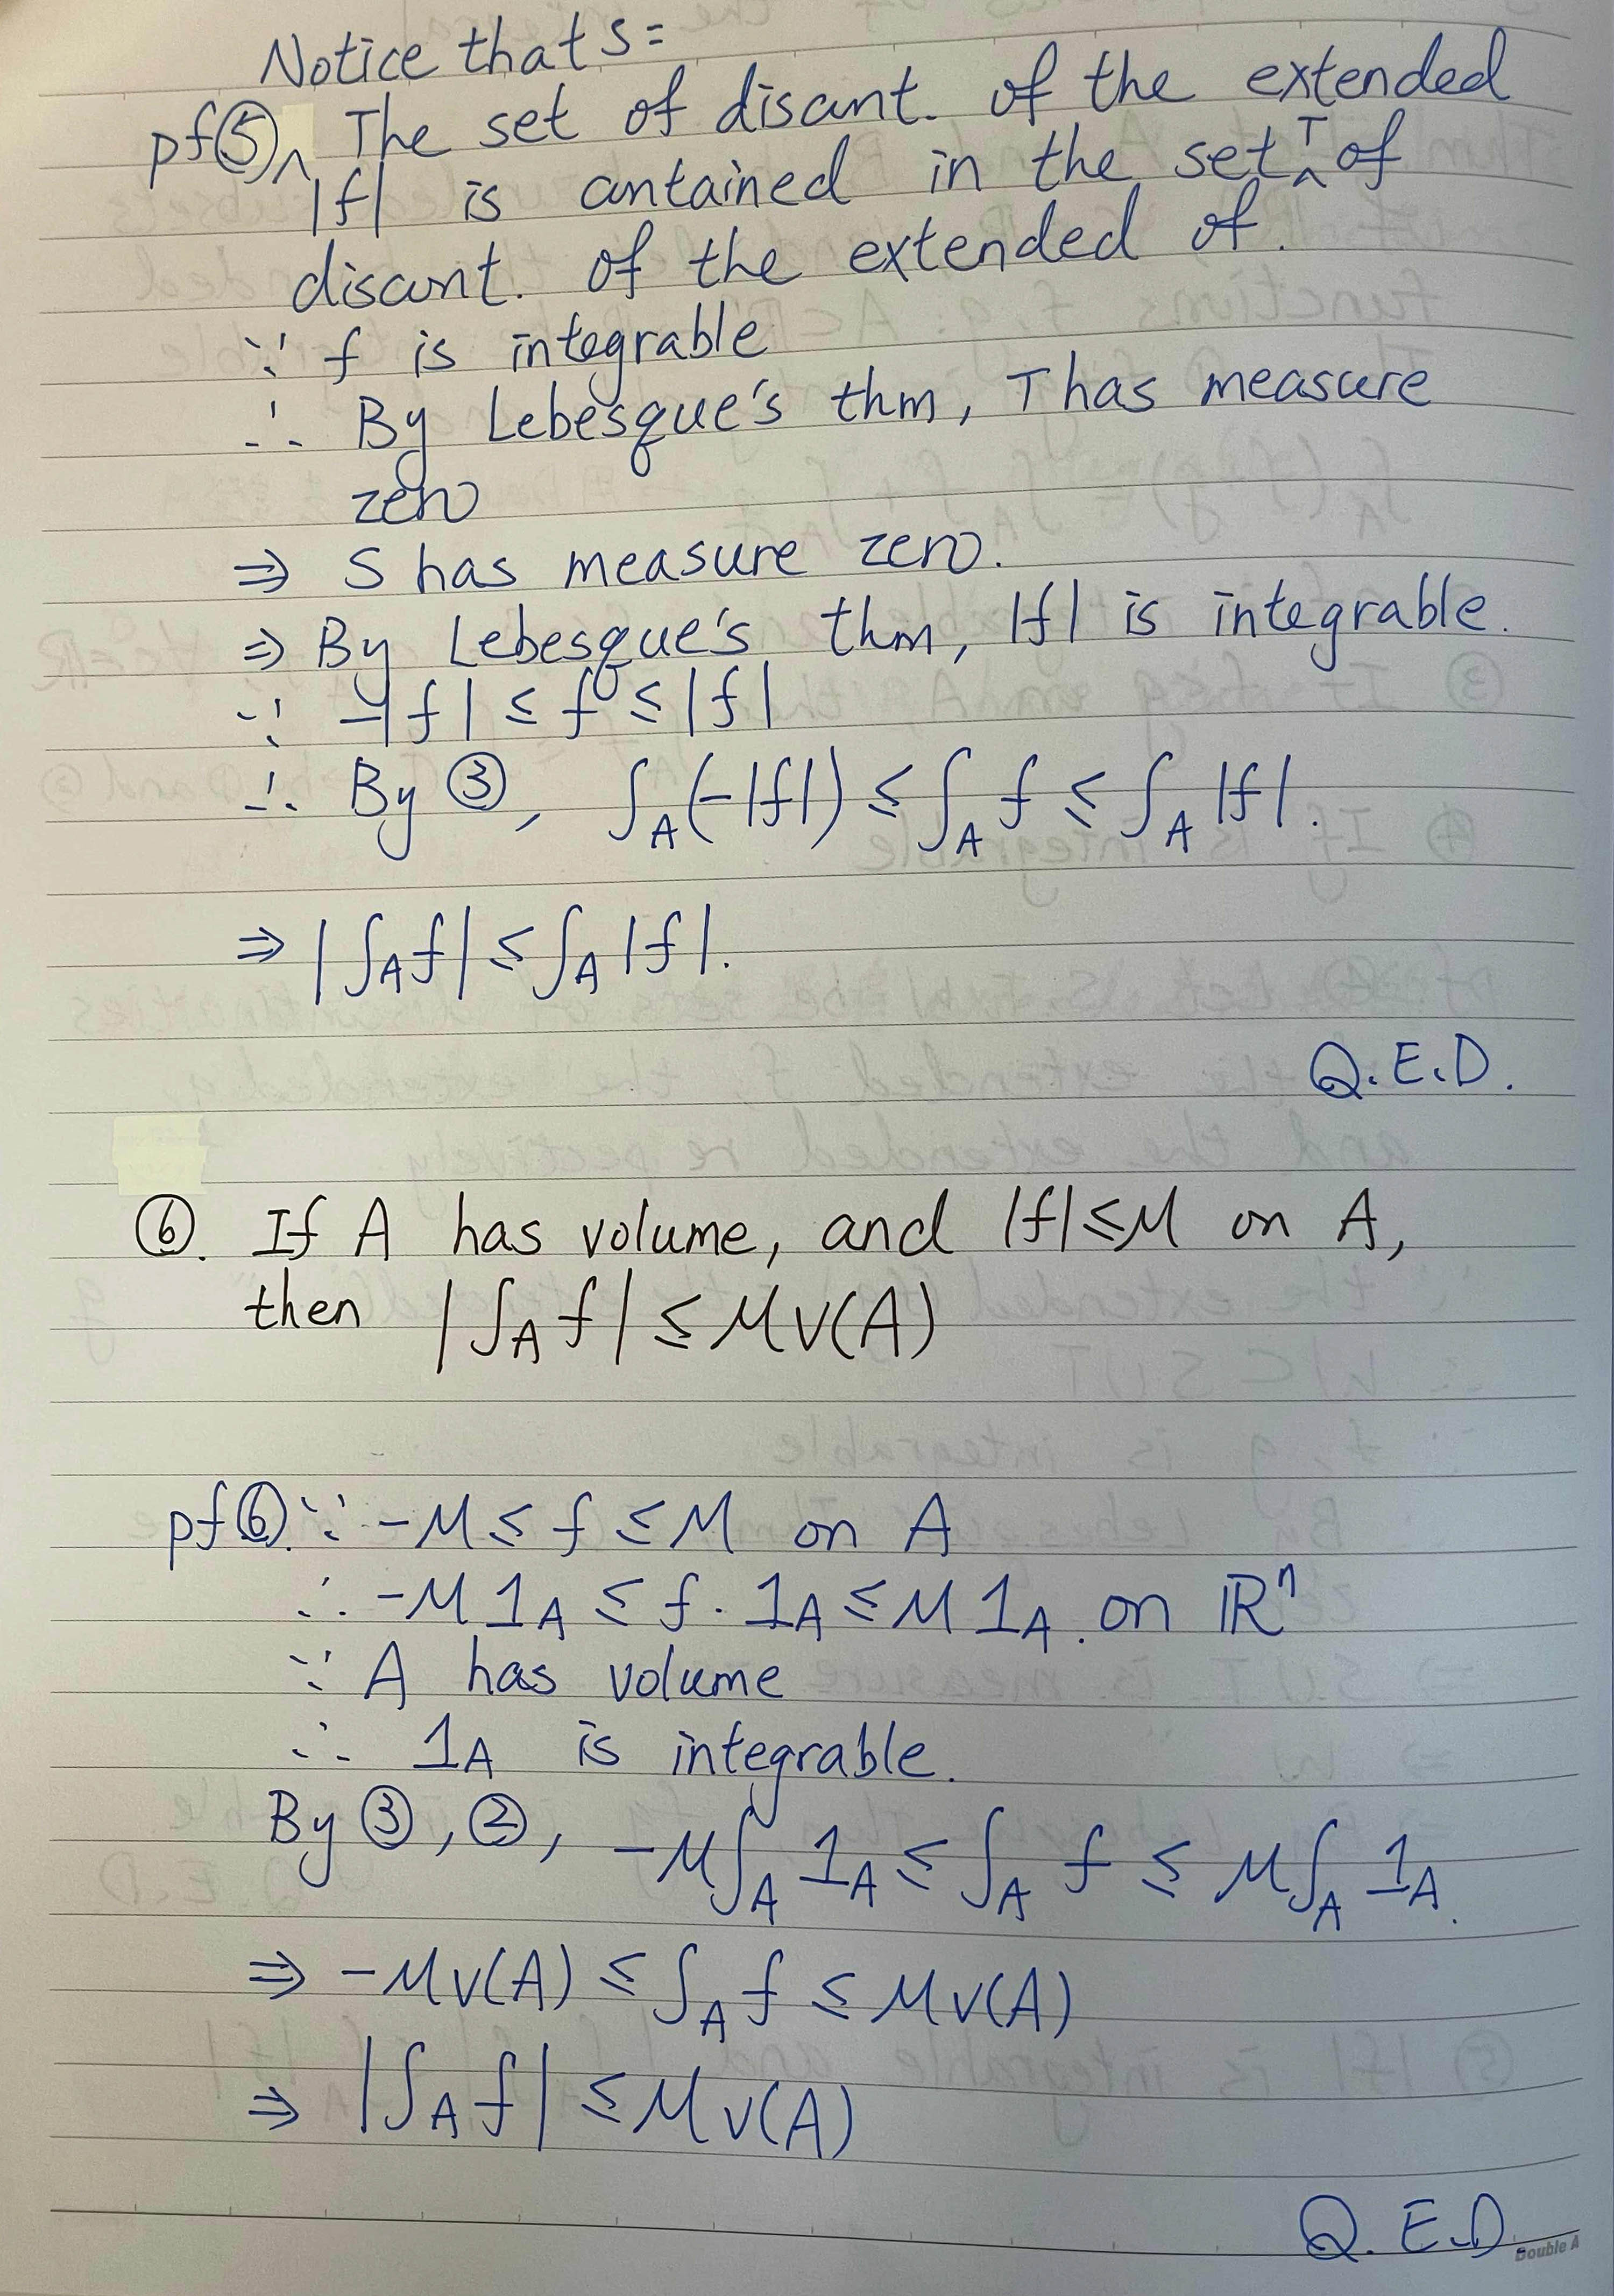 Notice that S =
pf⑤. ^ The set of discont. of the extended
|f| is contained in the set ^T of
discont. of the extended of.
∵ f is integrable
∴ By Lebesque's thm, T has measure
zero
⇒ S has measure zero.
⇒ By Lebesque's thm, |f| is integrable.
∵ -|f| ≤ f ≤ |f|
∴ By ③, ∫_A (-|f|) ≤ ∫_A f ≤ ∫_A |f|.
⇒ |∫_A f| ≤ ∫_A |f|.
Q.E.D.
⑥. If A has volume, and |f| ≤ M on A,
then |∫_A f| ≤ M v(A)
pf⑥. ∵ -M ≤ f ≤ M on A
∴ -M 1_A ≤ f · 1_A ≤ M 1_A. on ℝⁿ
∵ A has volume
∴ 1_A is integrable.
By ③, ②, -M ∫_A 1_A ≤ ∫_A f ≤ M ∫_A 1_A.
⇒ -M v(A) ≤ ∫_A f ≤ M v(A)
⇒ |∫_A f| ≤ M v(A)
Q.E.D.
Double A